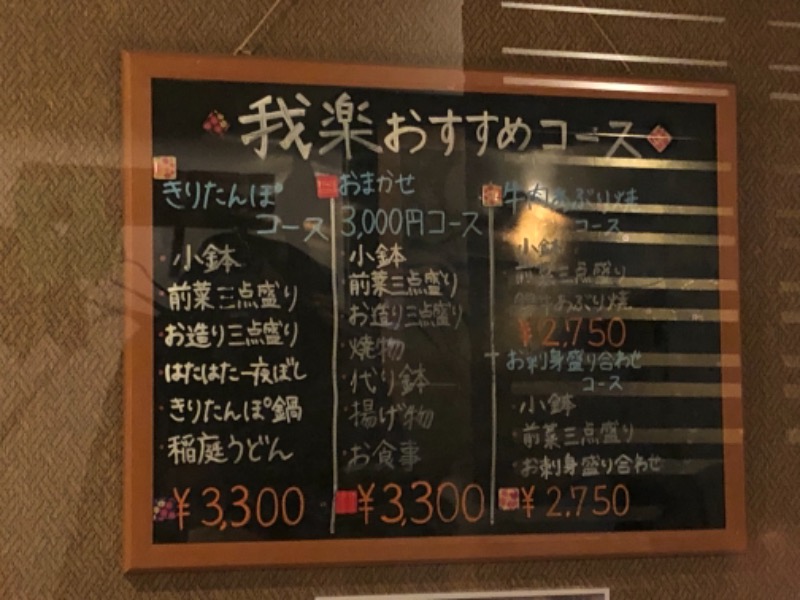 我楽おすすめコース
きりたんぽ
コース
・小鉢
・前菜三点盛り
・お造り三点盛り
・はたはた一夜ぼし
・きりたんぽ鍋
・稲庭うどん
¥3,300
おまかせ
3,000円コース
・小鉢
・前菜三点盛り
・お造り三点盛り
・焼物
・代り鉢
・揚げ物
・お食事
¥3,300
牛肉あぶり焼
コース
・小鉢
・前菜三点盛り
あぶり焼
¥2,750
お刺身盛り合わせ
コース
・小鉢
・前菜三点盛り
・お刺身盛り合わせ
¥2,750